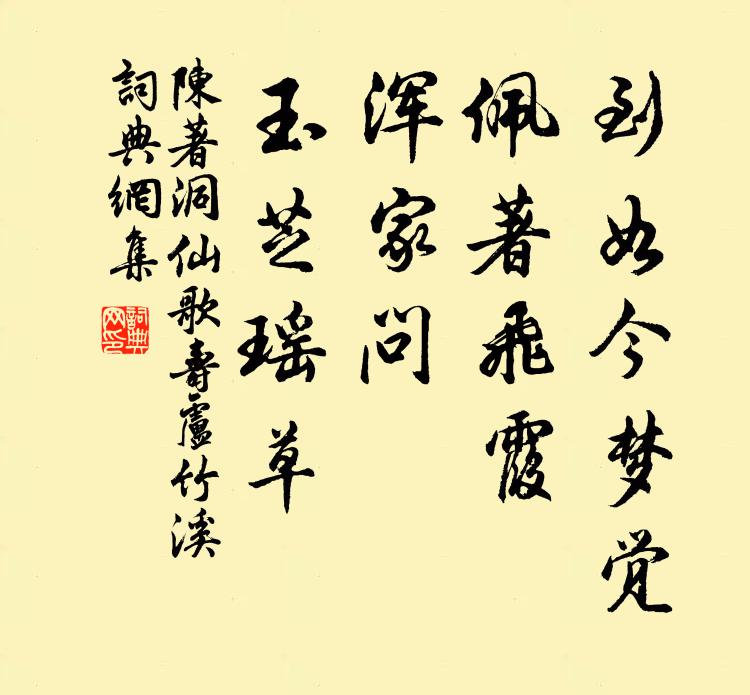 到如今梦觉
佩著飛霞
浑家问
玉芝瑶草
陳著洞仙歌壽盧竹溪
詞典網集
詞典
网印